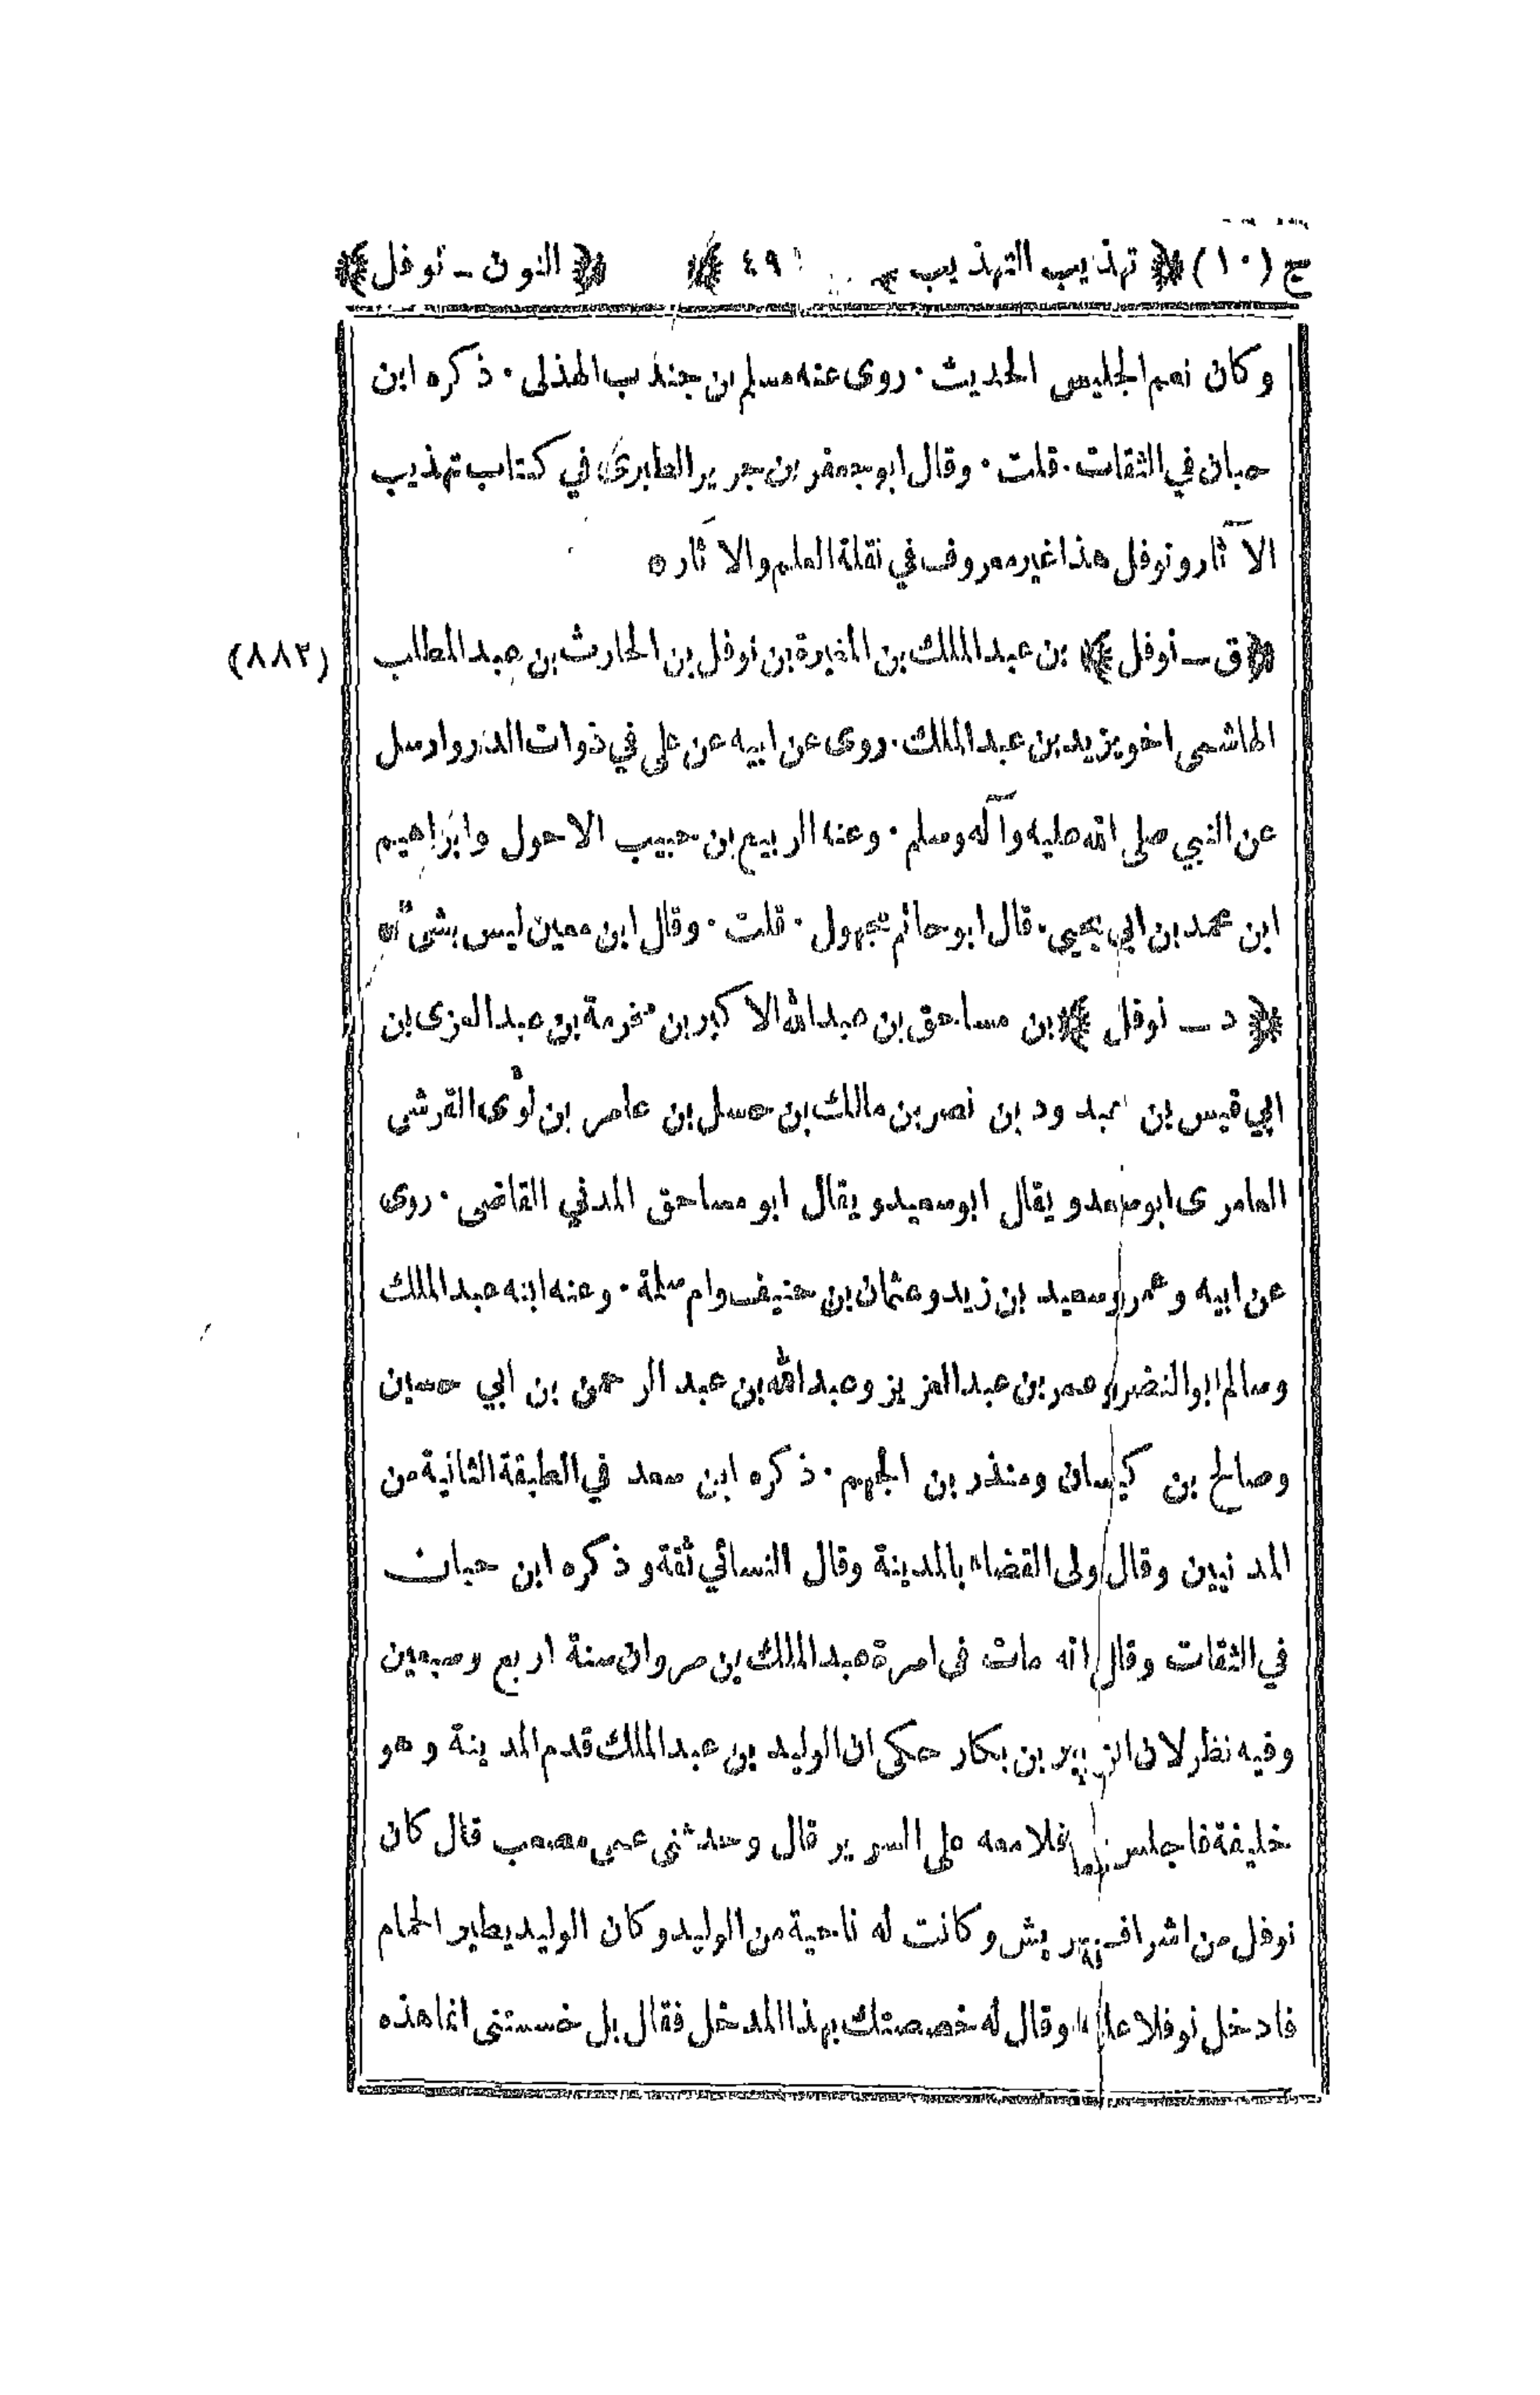 ج (١٠) ﴿ تهذيب التهذيب ٤٩ ﴾ ﴿ النون ـ نوفل ﴾
وكان نعم الجليس الحديث ٠ روى عنه مسلم بن جندب الهذلى ٠ ذكره ابن
حبان في الثقات ٠ قلت ٠ وقال ابو جعفر بن جرير الطبرى في كتاب تهذيب
الآ ثار و نوفل هذا غير معروف في نقلة العلم والآ ثار ٥
﴿ ق ـ نوفل ﴾ بن عبد الملك بن المغيرة بن نوفل بن الحارث بن عبد المطلب (٨٨٢)
الهاشمى اخو يزيد بن عبد الملك ٠ روى عن ابيه عن على في ذوات الدر وارسل
عن النبي صلى الله عليه وآله وسلم ٠ وعنه الربيع بن حبيب الاحول وابراهيم
ابن محمد بن ابي يحيى ٠ قال ابو حاتم مجهول ٠ قلت ٠ وقال ابن معين ليس بشئ ٥
﴿ د ـ نوفل ﴾ بن مساحق بن عبد الله الاكبر بن مخرمة بن عبد العزى بن
ابي قيس بن عبد ود بن نصر بن مالك بن حسل بن عامر بن لؤى القرشى
العامرى ابو سعد و يقال ابو سعيد و يقال ابو مساحق المدني القاضى ٠ روى
عن ابيه و عمر و سعيد بن زيد و عثمان بن حنيف و ام سلمة ٠ وعنه ابنه عبد الملك
وسالم ابو النضر و عمر بن عبد العزيز و عبد الله بن عبد الرحمن بن ابي حسين
وصالح بن كيسان ومنذر بن الجهم ٠ ذكره ابن سعد في الطبقة الثانية من
المدنيين وقال ولى القضاء بالمدينة وقال النسائي ثقة و ذكره ابن حبان
في الثقات وقال انه مات فى امرة عبد الملك بن مروان سنة اربع وسبعين
وفيه نظر لان الزبير بن بكار حكى ان الوليد بن عبد الملك قدم المدينة وهو
خليفة فاجلس نوفلا معه على السرير قال وحدثنى عمى مصعب قال كان
نوفل من اشراف قريش وكانت له ناحية من الوليد وكان الوليد يطير الحمام
فادخل نوفلا وقال له خصصتك بهذا المدخل فقال بل خسستنى انما هذه